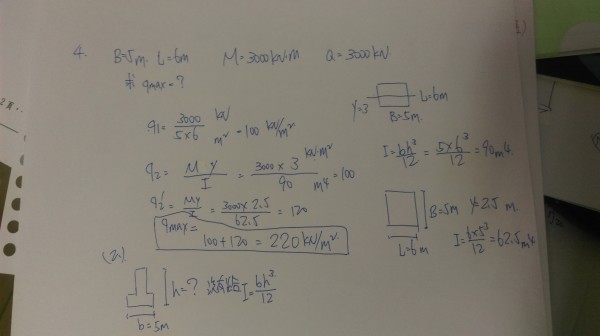 4. B=5m. L=6m M=3000kN·m Q=3000kN.
求 qmax=?
q1= 3000/5x6 kN/m² =100 kN/m²
q2= M y/I = 3000x3/90 kN·m²/m4 =100
q2'= My/I = 3000x2.5/62.5 = 120
qmax=
100+120 = 220kN/m²
y=3 L=6m
B=5m.
I= bh³/12 = 5x6³/12 =90m4.
B=5m y=2.5 m.
L=6m I= 6x5³/12 =62.5m4
(2).
h=? I= bh³/12
b=5m